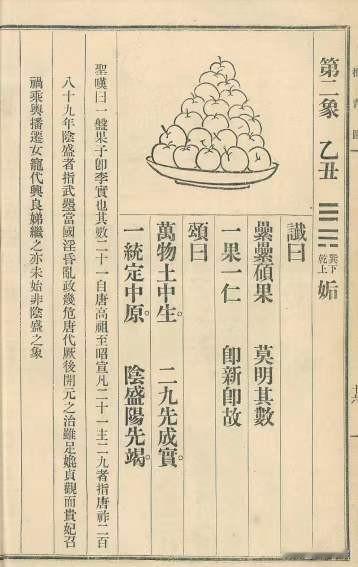 第二象 乙丑 巽下乾上 姤
讖曰
纍纍碩果 莫明其數
一果一仁 即新即故
頌曰
萬物土中生。 二九先成實。
一統定中原。 陰盛陽先竭。
聖嘆曰一盤果子即李實也其數二十一自唐高祖至昭宣凡二十一主二九者指唐祚二百
八十九年陰盛者指武曌當國淫昏亂政幾危唐代厥後開元之治雖足媲貞觀而貴妃召
禍乘輿播遷女寵代興良娣繼之亦未始非陰盛之象